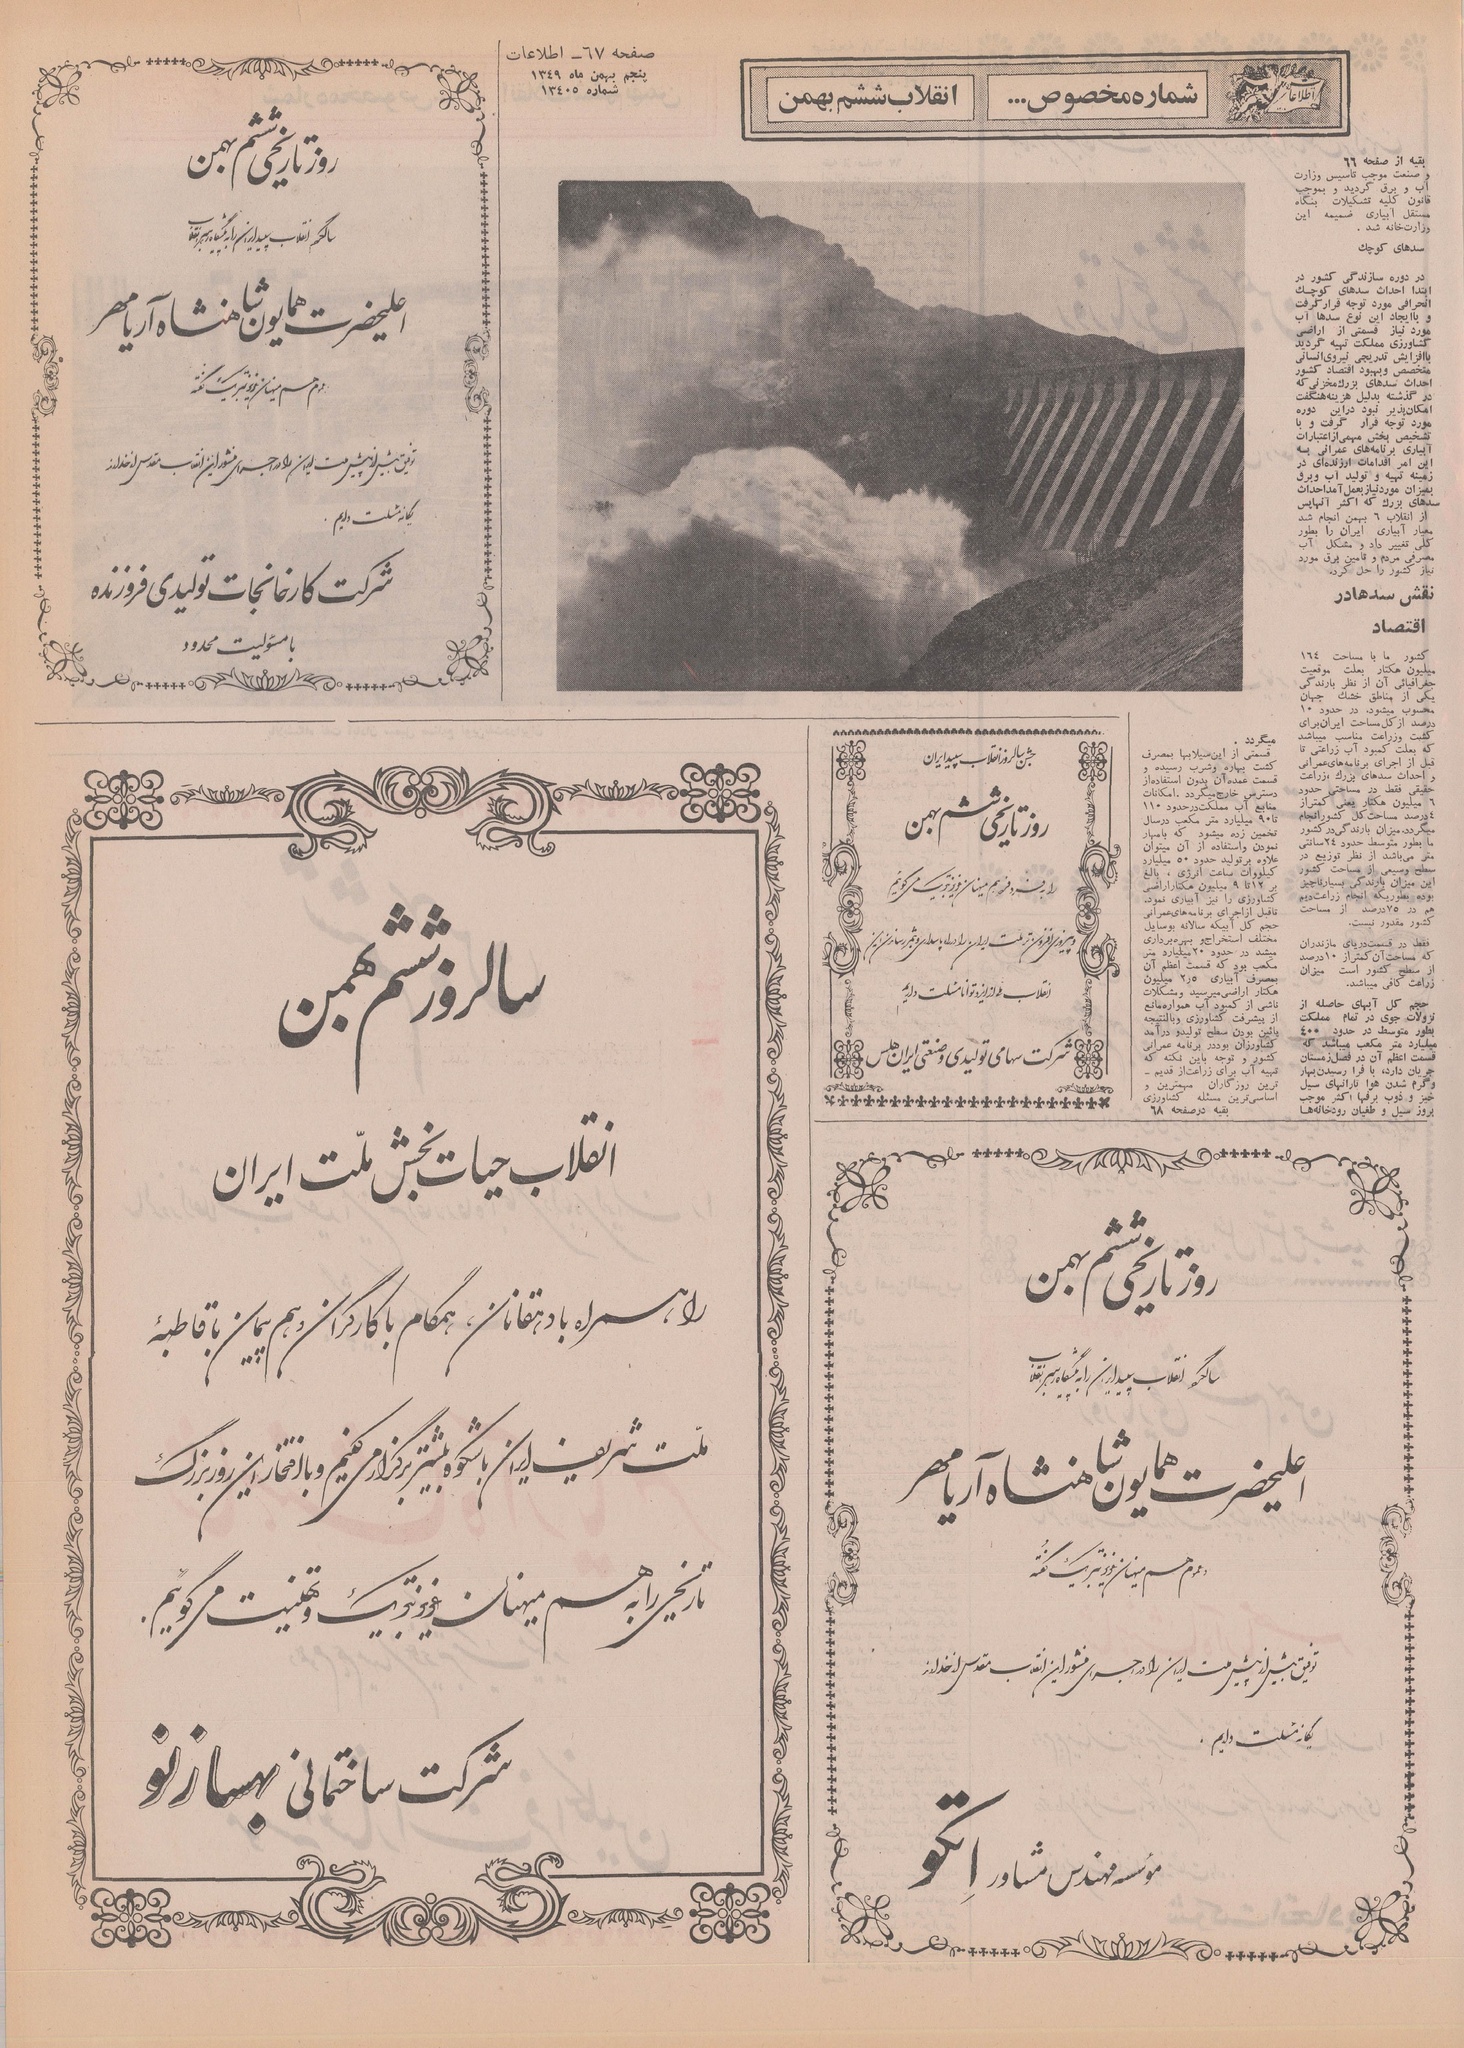 صفحه ۶۷ـ اطلاعات
پنجم بهمن ماه ۱۳۴۹
شماره ۱۳۴۰۵
شماره مخصوص ...
انقلاب ششم بهمن
بقیه از صفحه ۶۶
و صنعت موجب تأسیس وزارت
آب و برق گردید و بموجب
قانون کلیه تشکیلات بنگاه
مستقل آبیاری ضمیمه این
وزارت‌خانه شد .
سدهای کوچک
در دوره سازندگی کشور در
ابتدا احداث سدهای کوچک
انحرافی مورد توجه قرار گرفت
و باایجاد این نوع سدها آب
مورد نیاز قسمتی از اراضی
کشاورزی مملکت تهیه گردید
باافزایش تدریجی نیروی‌انسانی
متخصص وبهبود اقتصاد کشور
احداث سدهای بزرك مخزنی که
در گذشته بدلیل هزینه‌هنگفت
امکان‌پذیر نبود دراین دوره
مورد توجه قرار گرفت و با
تشخیص بخش مهمی‌از‌اعتبارات
آبیاری برنامه‌های عمرانی به
این امر اقدامات ارزنده‌ای در
زمینه تهیه و تولید آب وبرق
بمیزان موردنیازبعمل‌آمداحداث
سدهای بزرك که اکثر آنهاپس
از انقلاب ٦ بهمن انجام شد
معیار آبیاری ایران را بطور
کلی تغییر داد و مشکل آب
مصرفی مردم و تأمین برق مورد
نیاز کشور را حل کرد.
نقش سدهادر
اقتصاد
کشور ما با مساحت ۱۶۴
میلیون هکتار بعلت موقعیت
جغرافیائی آن از نظر بارندگی
یکی از مناطق خشك جهان
محسوب میشود، در حدود ۱۰
درصد ازکل‌مساحت ایران‌برای
کشت وزراعت مناسب میباشد
که بعلت کمبود آب زراعتی تا
قبل از اجرای برنامه‌های‌عمرانی
و احداث سدهای بزرك ،زراعت
حقیقی فقط در مساحتی حدود
۶ میلیون هکتار یعنی کمتراز
۴درصد مساحت‌کل کشورانجام
میگردد.میزان بارندگی‌در‌کشور
ما بطور متوسط حدود ۲۴سانتی
متر می‌باشد از نظر توزیع در
سطح وسیعی از مساحت کشور
این میزان بارندگی بسیارناچیز
بوده بطوریکه انجام زراعت‌دیم
هم در ۷۵درصد از مساحت
کشور مقدور نیست.
فقط در قسمت‌دریای مازندران
که مساحت‌آن‌کمتراز ۱۰درصد
از سطح کشور است میزان
زراعت کافی میباشد.
حجم کل آبهای حاصله از
نزولات جوی در تمام مملکت
بطور متوسط در حدود ۴۰۰
میلیارد متر مکعب میباشد که
قسمت اعظم آن در فصل‌زمستان
جریان دارد، با فرا رسیدن‌بهار
وگرم شدن هوا بارانهای سیل
خیز و ذوب برفها اکثر موجب
بروز سیل و طغیان رودخانه‌ها
میگردد .
قسمتی از این‌سیلابها بمصرف
کشت بهاره وشرب رسیده و
قسمت عمده‌آن بدون استفاده‌از
دسترس خارج‌میگردد .امکانات
منابع آب مملکت‌درحدود ۱۱۰
تا۹۰ میلیارد متر مکعب درسال
تخمین زده میشود که بامهار
نمودن واستفاده از آن میتوان
علاوه برتولید حدود ۵۰ میلیارد
کیلووات ساعت انرژی ، بالغ
بر ۱۲تا ۹ میلیون هکتاراراضی
کشاورزی را نیز آبیاری نمود.
تاقبل ازاجرای برنامه‌های‌عمرانی
حجم کل آبیکه سالانه بوسایل
مختلف استخراج‌و بهره‌برداری
میشد در حدود ۲۰میلیارد متر
مکعب بود که قسمت اعظم آن
بمصرف آبیاری ۲٫۵ میلیون
هکتار اراضی‌میرسید ومشکلات
ناشی از کمبود آب همواره‌مانع
از پیشرفت کشاورزی وبالنتیجه
پائین بودن سطح تولیدو درآمد
کشاورزان بوددر برنامه عمرانی
کشور و توجه باین نکته که
تهیه آب برای زراعت‌از قدیم ـ
ترین روزگاران مهمترین و
اساسی‌ترین مسئله کشاورزی
بقیه درصفحه ۶۸
روز تاریخی ششم بهمن
سالگرد انقلاب سپید ایران را به پیشگاه رهبر انقلاب
اعلیحضرت همایون شاهنشاه آریامهر
و عموم هم میهنان عزیز تبریک گفته
توفیق بیش از پیش ملت ایران را در اجرای منشور این انقلاب مقدس از خداوند
یگانه مسئلت داریم .
شرکت کارخانجات تولیدی فروزنده
با مسئولیت محدود
جشن سالروز انقلاب سپید ایران
روز تاریخی ششم بهمن
را به فرد فرد هم میهنان عزیز تبریک می گوئیم
انقلاب را از ایزد توانا مسئلت داریم
شرکت سهامی تولیدی و صنعتی ایران هلس
سالروز ششم بهمن
انقلاب حیات بخش ملّت ایران
را، همراه با دهقانان، همگام با کارگران و هم پیمان با قاطبهٔ
ملّت شریف ایران با شکوه بیشتر برگزار می کنیم و با افتخار این روز بزرگ
تاریخی را به هم میهنان عزیز تبریک و تهنیت می گوئیم.
شرکت ساختمانی بهساز نو
روز تاریخی ششم بهمن
سالگرد انقلاب سپید ایران را به پیشگاه رهبر انقلاب
اعلیحضرت همایون شاهنشاه آریامهر
و عموم هم میهنان عزیز تبریک گفته
توفیق بیش از پیش ملت ایران را در اجرای منشور این انقلاب مقدس از خداوند
یگانه مسئلت داریم .
مؤسسه مهندس مشاور اِتکو